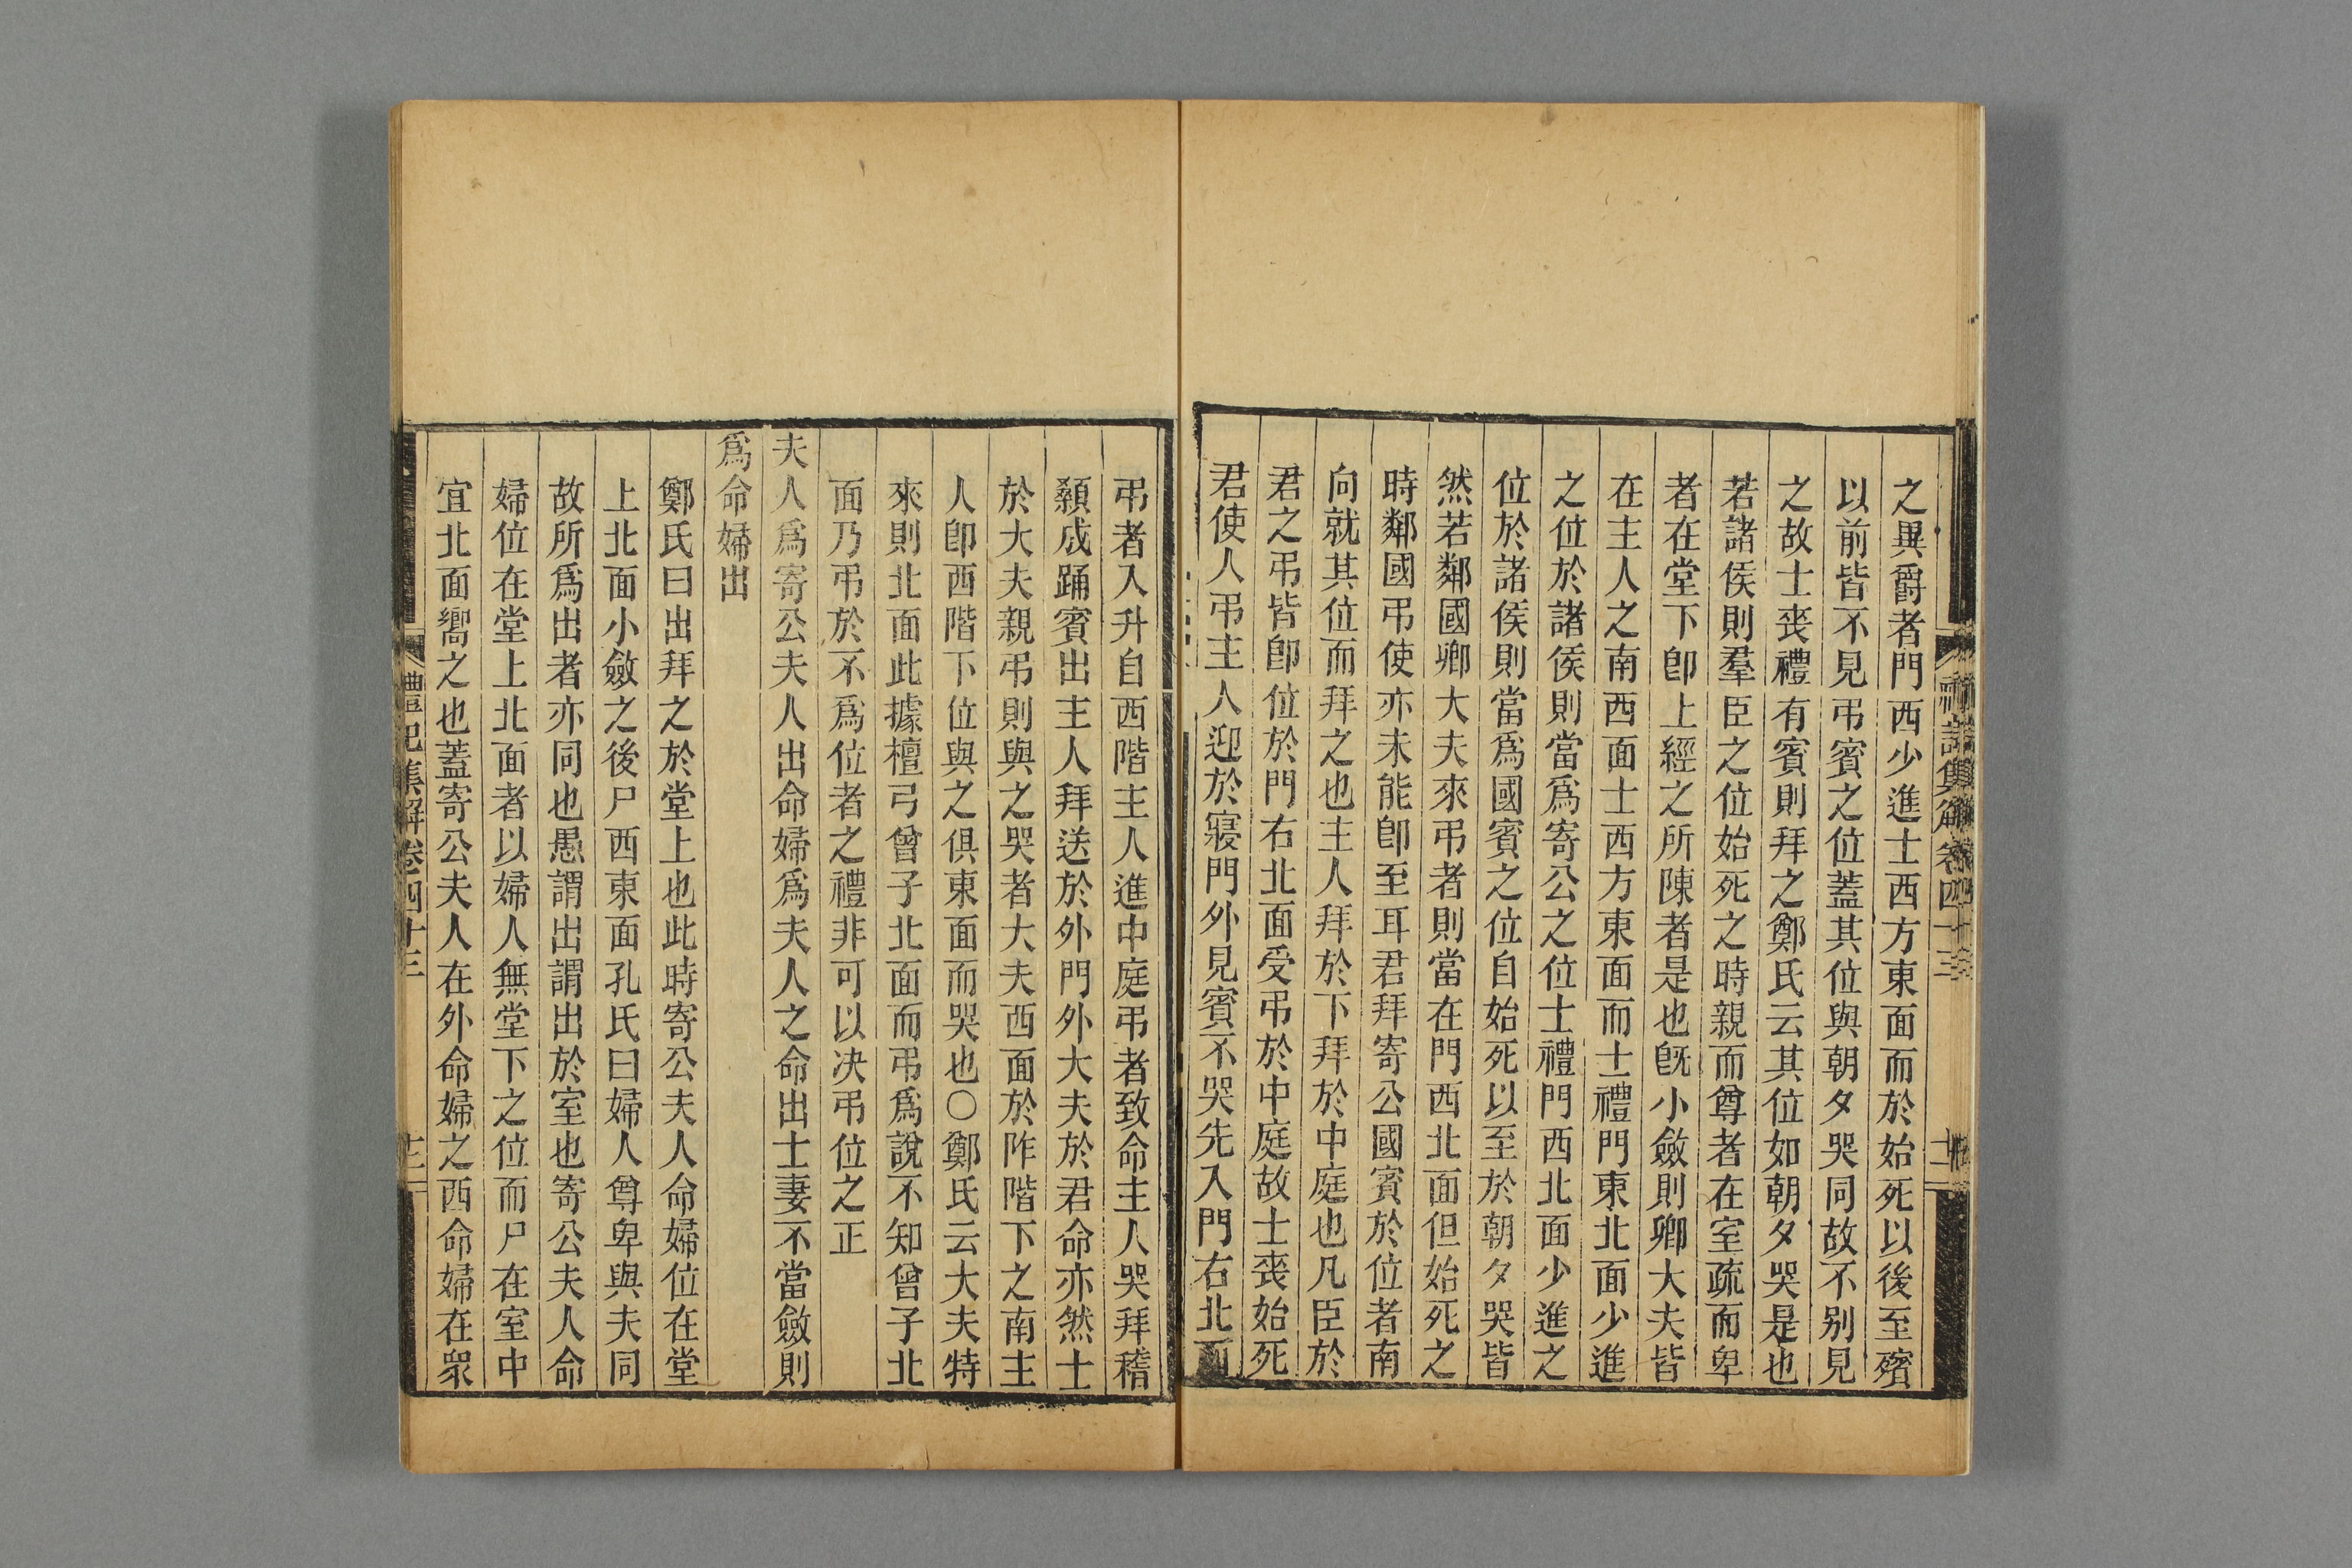 之異爵者門西少進士西方東面而於始死以後至殯
以前皆不見弔賓之位蓋其位與朝夕哭同故不别見
之故士喪禮有賓則拜之鄭氏云其位如朝夕哭是也
若諸侯則羣臣之位始死之時親而尊者在室疏而卑
者在堂下卽上經之所陳者是也旣小斂則卿大夫皆
在主人之南西面士西方東面而士禮門東北面少進
之位於諸侯則當爲寄公之位士禮門西北面少進之
位於諸侯則當爲國賓之位自始死以至於朝夕哭皆
然若鄰國卿大夫來弔者則當在門西北面但始死之
時鄰國弔使亦未能卽至耳君拜寄公國賓於位者南
向就其位而拜之也主人拜於下拜於中庭也凡臣於
君之弔皆卽位於門右北面受弔於中庭故士喪始死
君使人弔主人迎於寢門外見賓不哭先入門右北面
弔者入升自西階主人進中庭弔者致命主人哭拜稽
顙成踊賓出主人拜送於外門外大夫於君命亦然士
於大夫親弔則與之哭者大夫西面於阼階下之南主
人卽西階下位與之俱東面而哭也〇鄭氏云大夫特
來則北面此據檀弓曾子北面而弔爲說不知曾子北
面乃弔於不爲位者之禮非可以决弔位之正
夫人爲寄公夫人出命婦爲夫人之命出士妻不當斂則
爲命婦出
鄭氏曰出拜之於堂上也此時寄公夫人命婦位在堂
上北面小斂之後尸西東面孔氏曰婦人尊卑與夫同
故所爲出者亦同也愚謂出謂出於室也寄公夫人命
婦位在堂上北面者以婦人無堂下之位而尸在室中
宜北面嚮之也蓋寄公夫人在外命婦之西命婦在衆
禮記集解卷四十三